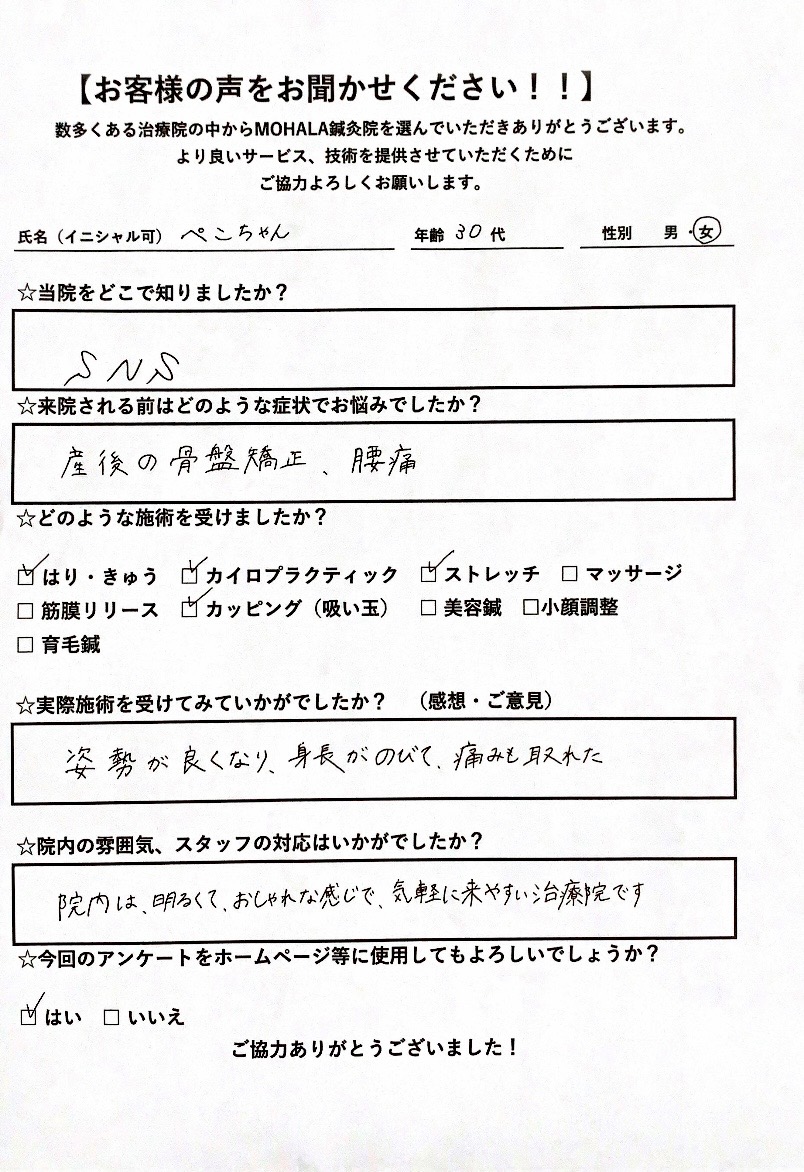 【お客様の声をお聞かせください！！】
数多くある治療院の中からMOHALA鍼灸院を選んでいただきありがとうございます。
より良いサービス、技術を提供させていただくために
ご協力よろしくお願いします。
氏名（イニシャル可） ぺこちゃん 年齢 30 代 性別 男・女
☆当院をどこで知りましたか？
SNS
☆来院される前はどのような症状でお悩みでしたか？
産後の骨盤矯正、腰痛
☆どのような施術を受けましたか？
☑ はり・きゅう ☑ カイロプラクティック ☑ ストレッチ □ マッサージ
□ 筋膜リリース ☑ カッピング（吸い玉） □ 美容鍼 □小顔調整
□ 育毛鍼
☆実際施術を受けてみていかがでしたか？ （感想・ご意見）
姿勢が良くなり、身長がのびて、痛みも取れた
☆院内の雰囲気、スタッフの対応はいかがでしたか？
院内は、明るくて、おしゃれな感じで、気軽に来やすい治療院です
☆今回のアンケートをホームページ等に使用してもよろしいでしょうか？
☑ はい □ いいえ
ご協力ありがとうございました！